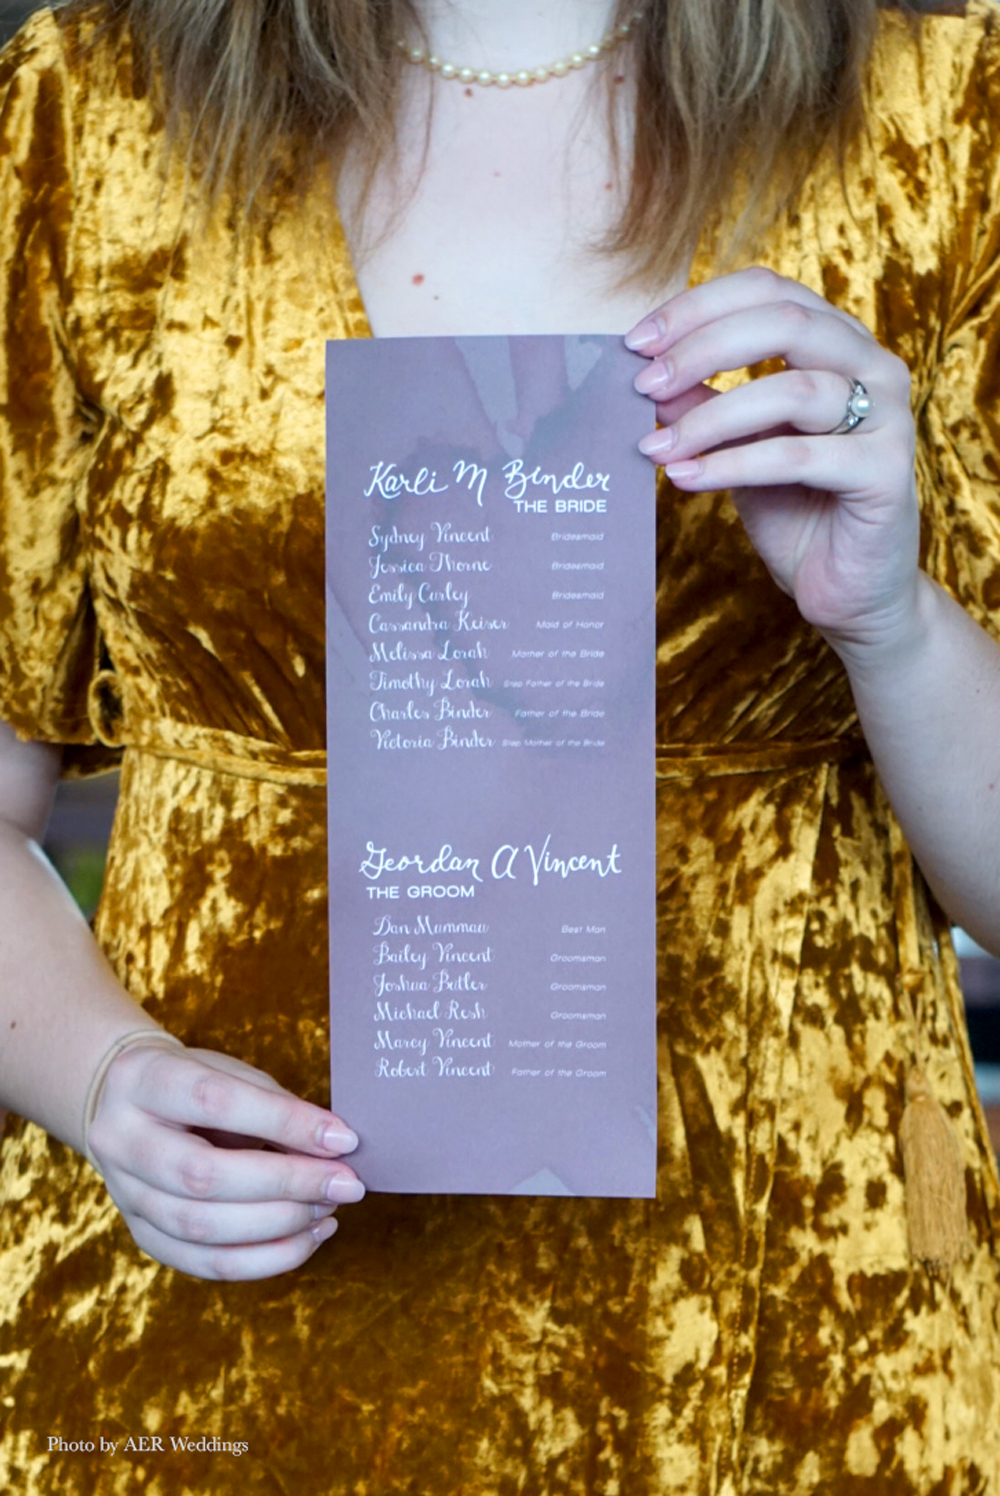 Karli M Binder
THE BRIDE
Sydney Vincent Bridesmaid
Jessica Thorne Bridesmaid
Emily Curley Bridesmaid
Cassandra Keiser Maid of Honor
Melissa Lorah Mother of the Bride
Timothy Lorah Step Father of the Bride
Charles Binder Father of the Bride
Victoria Binder Step Mother of the Bride
Geordan A Vincent
THE GROOM
Dan Mummau Best Man
Bailey Vincent Groomsman
Joshua Butler Groomsman
Michael Resh Groomsman
Marcy Vincent Mother of the Groom
Robert Vincent Father of the Groom
Photo by AER Weddings